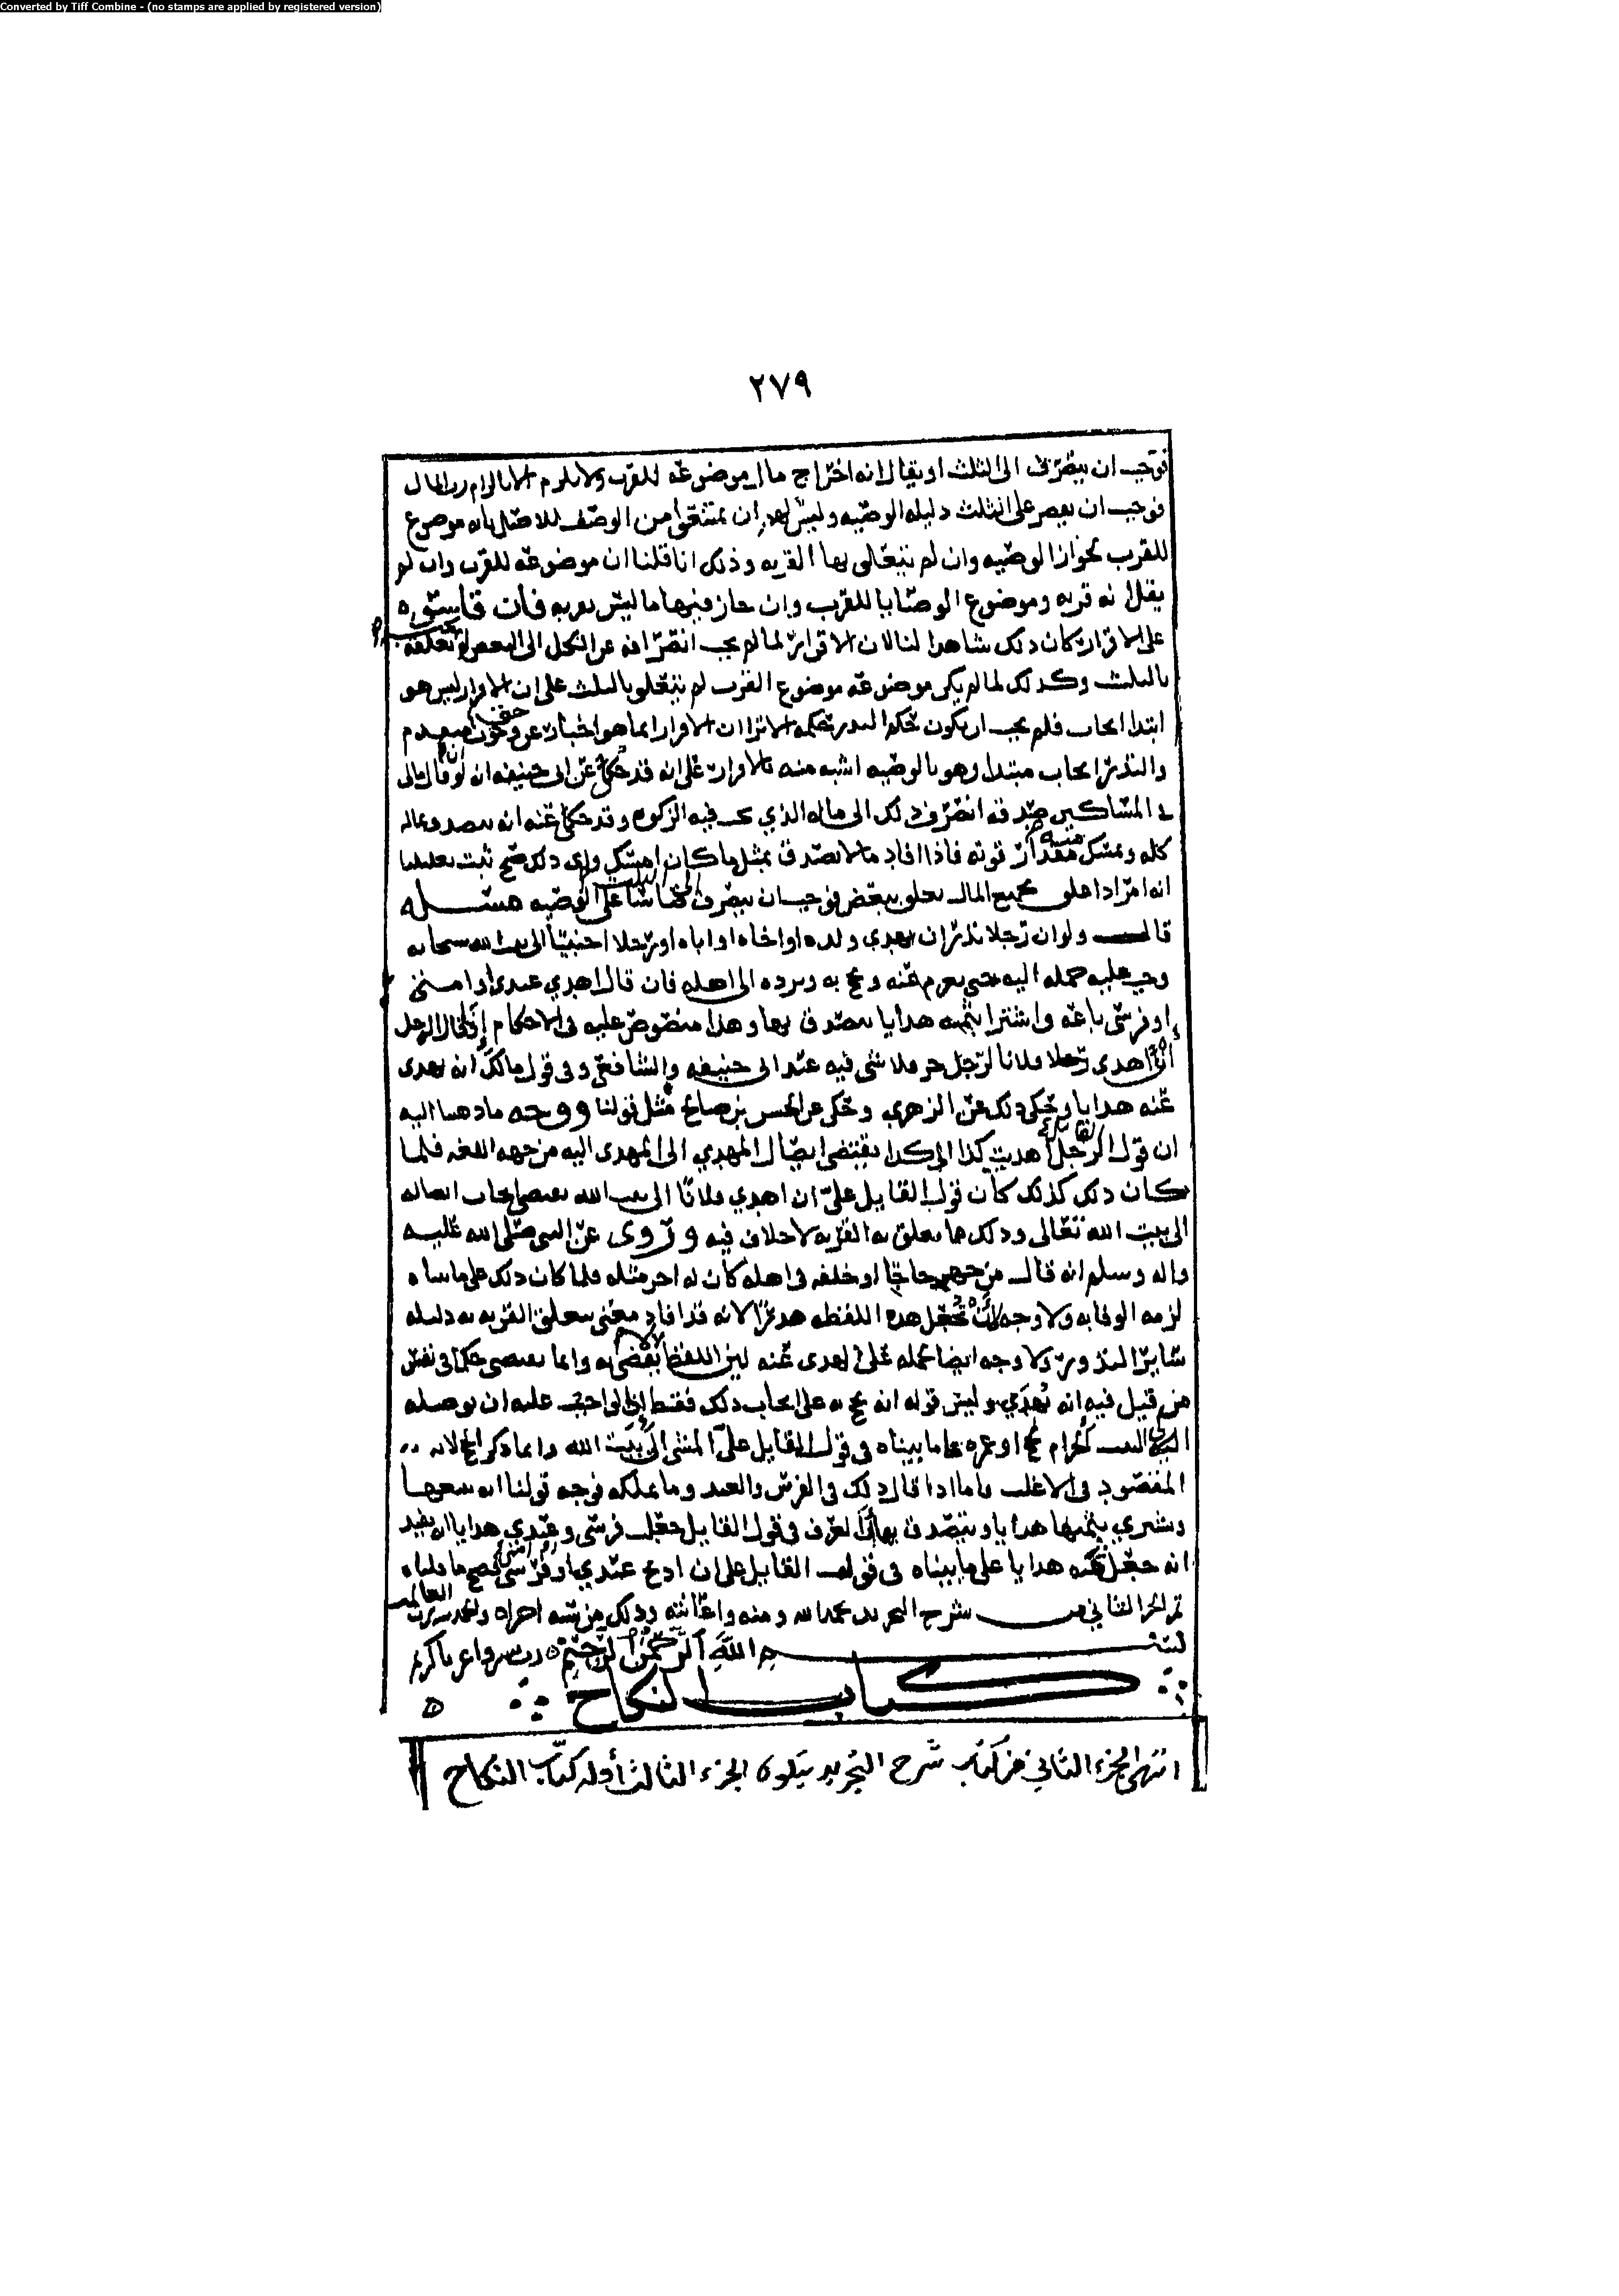 Converted by Tiff Combine - (no stamps are applied by registered version)
٢٧٩
فوجب ان ينصرف الى الثلث او يقال انه اخراج مال موضوعه للقرب ولا يلزم الا بالزام رب المال
فوجب ان يقصر على الثلث دليله الوصيه وليس لهم ان يمتنعوا من الوصف للاصل بانه موضوع
للقرب بجواز الوصيه وان لم يتعلق بها القربه وذلك انا قلنا ان موضوعه للقرب وان لم
يقل انه قربه وموضوع الوصايا للقرب وان جاز فيها ما ليس بقربه فان قاسوه
على الاقرار كان ذلك شاهدا لنا لان الاقرار لما لم يجب انصرافه عن الكل الى البعض لم يجب تعلقه
بالثلث وكذلك لما لم يكن موضوعه موضوع القرب لم يتعلق بالثلث على ان الاقرار ليس هو
ابتدا ايجاب فلم يجب ان يكون حكم النذر حكمه الا ترا ان الاقرار انما هو اخبار عن وجوب حق متقدم
والنذر ايجاب مبتدا وهو بالوصيه اشبه منه بالاقرار على انه قد حكي عن ابي حنيفه انه لو قال ان مالي
في المساكين صدقه انصرف ذلك الى ماله الذي يجب فيه الزكوه وقد حكي عنه انه يتصدق بماله
كله ويمسك منه مقدار قوته فاذا افاد مالا تصدق بمثل ما كان امسك واي ذلك صح ثبت تعليلنا
انه امر اذا علق بجميع المال تعلق ببعض فوجب ان ينصرف الى الثلث قياسا على الوصيه مسئله
قال ولو ان رجلا نذر ان يهدي ولده او اخاه او اباه او رجلا اجنبيا الى بيت الله سبحانه
وجب عليه حمله اليه حتى يغرم عنه ويحج به ويرده الى اهله فان قال اهدي عبدي او امتي
او فرسي باعه واشترا بثمنه هدايا يتصدق بها وهذا منصوص عليه في الاحكام اذا قال الرجل
انا اهدي رجلا فلانا لرجل حر فلا شي فيه عند ابي حنيفه والشافعي وفي قول مالك انه يهدى
عنه هدايا وحكي ذلك عن الزهري وحكي عن الحسن بن صالح مثل قولنا ووجه ما ذهبنا اليه
ان قول الرجل اهديت كذا الى كذا يقتضي ايصال المهدي الى المهدى اليه من جهه اللغه فلما
كان ذلك كذلك كان قول القايل علي ان اهدي فلانا الى بيت الله يقتضي ايجاب ايصاله
الى بيت الله تعالى وذلك مما يتعلق به القربه لا خلاف فيه وروى عن النبي صلى الله عليه
واله وسلم انه قال من جهز حاجا او خلفه في اهله كان له اجر مثله فلما كان ذلك على ما بيناه
لزمه الوفا به ولا وجه لان تجعل هذه اللفظه هدرا لانه قد افاد معنى يتعلق القربه به دليله
ساير النذور ولا وجه ايضا لحمله على ان يهدى عنه ليس اللفظ يقتضي به وانما يقتضي حكما في نفس
من قيل فيه انه يهدي وليس قوله انه يحج به على ايجاب ذلك فقط انما الواجب عليه ان يوصله
الى البيت الحرام بحج او عمره على ما بيناه في قول القايل علي المشي الى بيت الله وانما ذكر الحج لانه
المقصود في الاغلب فاما اذا قال ذلك في الفرس والعبد وما يملكه فوجه قولنا انه يبيعها
ويشتري بثمنها هدايا ويتصدق بها ان العرف في قول القايل جعلت فرسي وعبدي هدايا ان يفيد
انه جعل ثمنه هدايا على ما بيناه في قول القايل علي ان اذبح عبدي او امتي او فرسي فصح ما قلناه
تم الجزء الثاني من شرح التجريد بحمد الله ومنه واعانته وذلك من سته اجزاء والحمد لله رب العالمين
بسم الله الرحمن الرحيم رب يسر واعن يا كريم
كتاب النكاح
انتهى الجزء الثاني من كتاب شرح التجريد يتلوه الجزء الثالث أوله كتاب النكاح